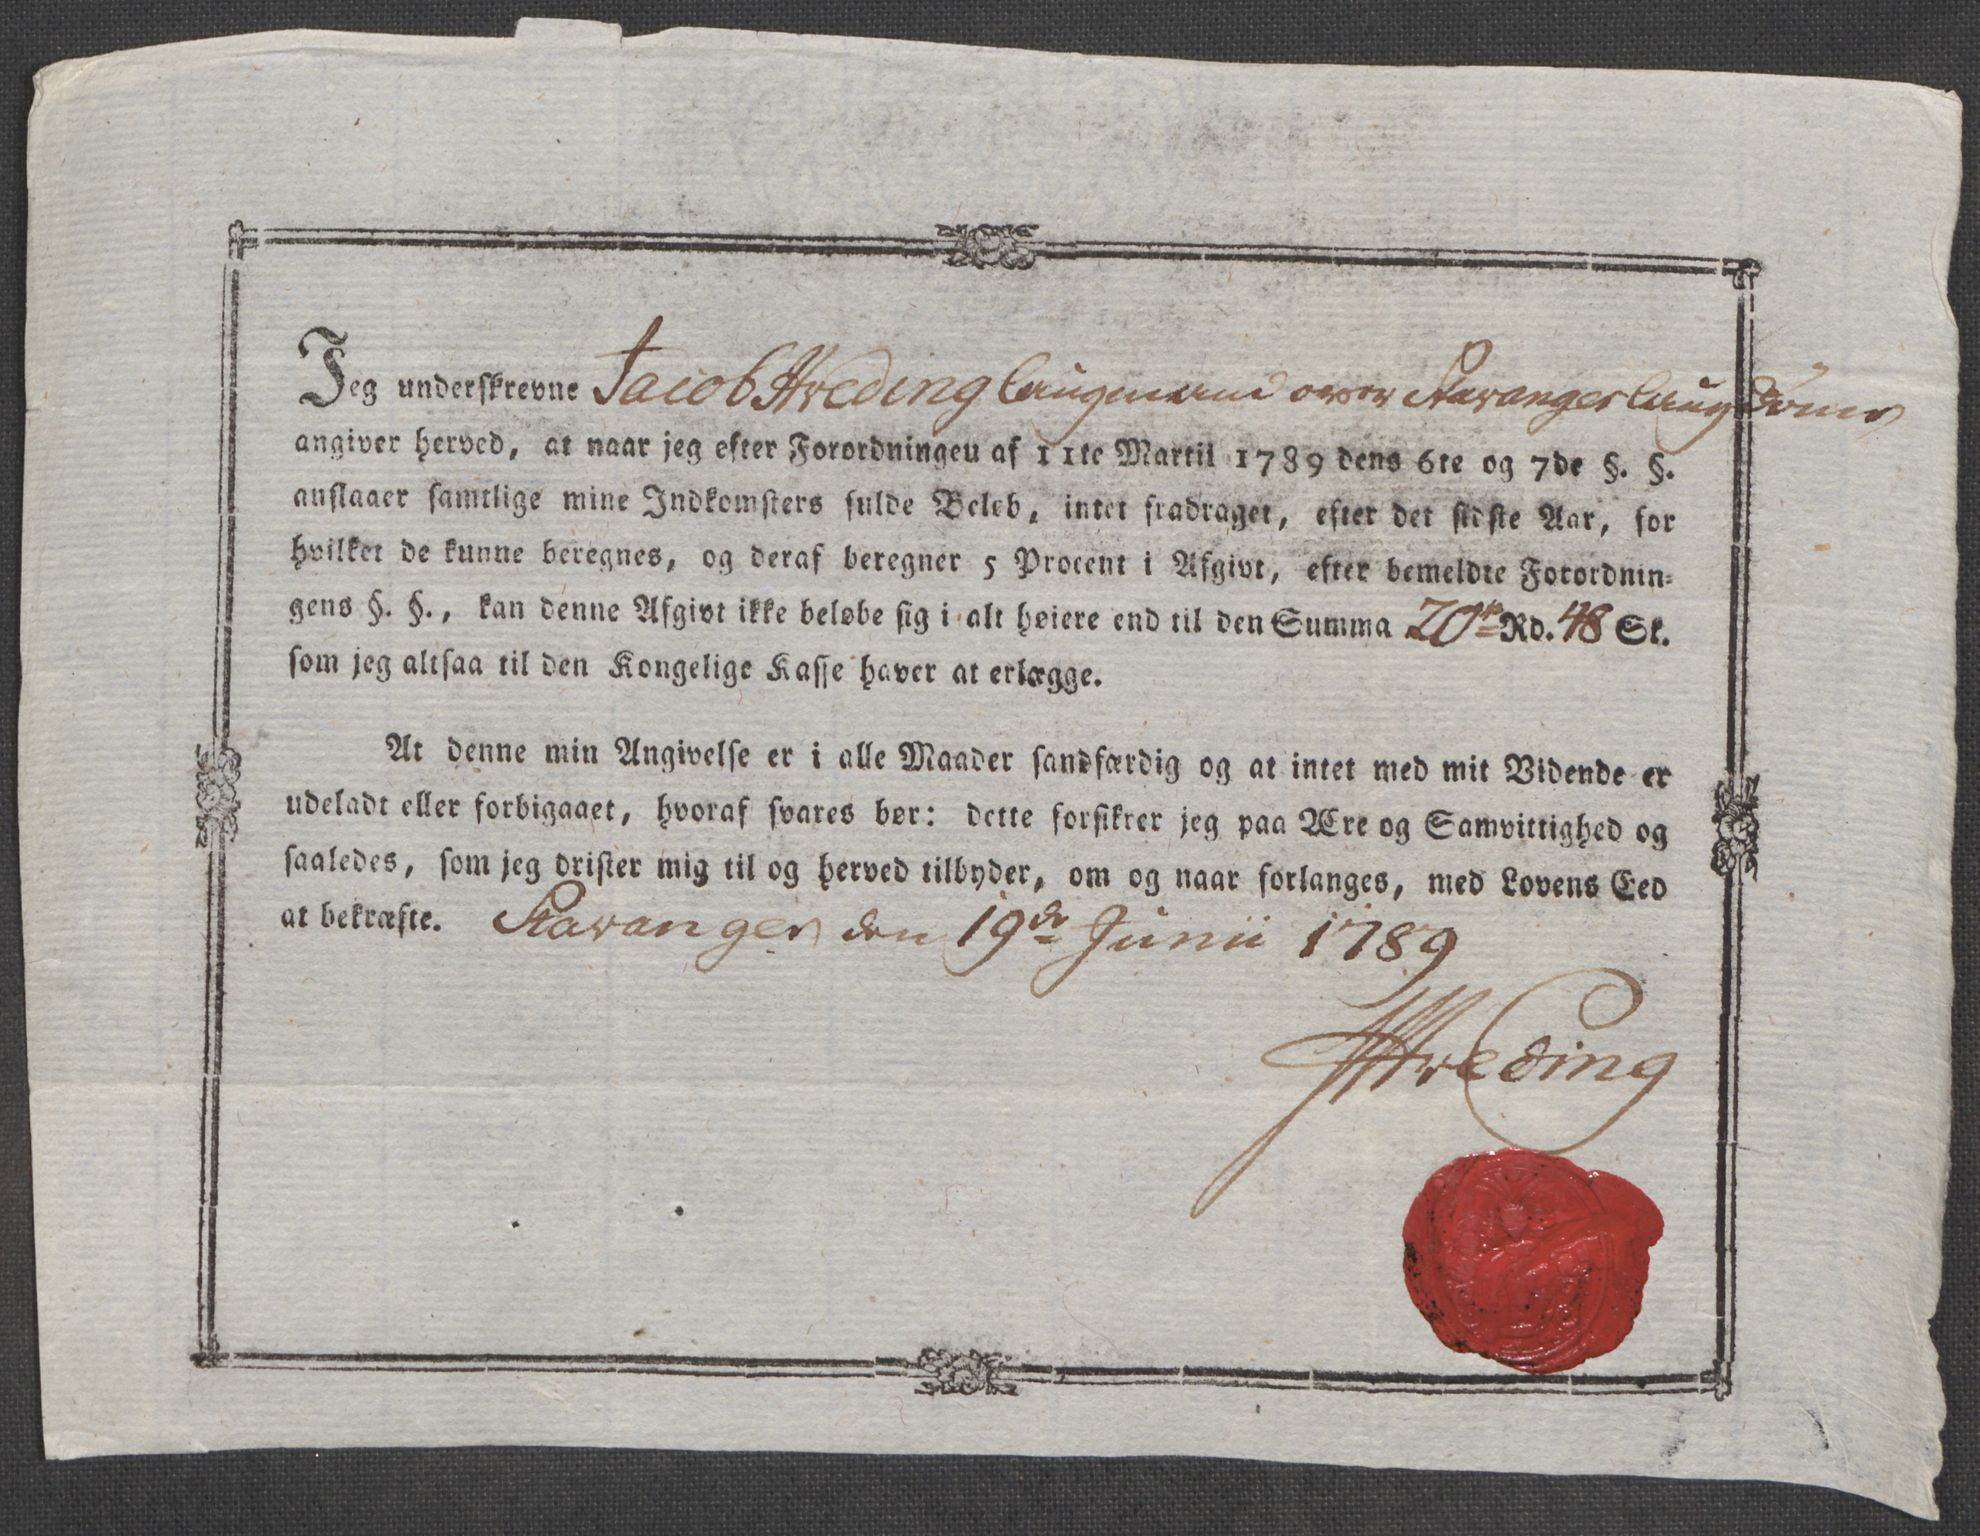 Jeg underskrevne Jacob Hveding laugmand over Stavanger laugdømer
angiver herved, at naar jeg efter Forordningen af 11te Martii 1789 dens 6te og 7de §. §.
anslaaer samtlige mine Indkomsters fulde Beløb, intet fradraget, efter det sidste Aar, for
hvilket de kunne beregnes, og deraf beregner 5 Procent i Afgivt, efter bemeldte Forordnin=
gens §. §., kan denne Afgivt ikke beløbe sig i alt høiere end til den Summa 20 Rd. 48 Sk.
som jeg altsaa til den Kongelige Kasse haver at erlægge.
At denne min Angivelse er i alle Maader sandfærdig og at intet med mit Vidende er
udeladt eller forbigaaet, hvoraf svares bør: dette forsikrer jeg paa Ære og Samvittighed og
saaledes, som jeg drister mig til og herved tilbyder, om og naar forlanges, med Lovens Eed
at bekræfte. Stavanger den 19de Junii 1789
JHveding